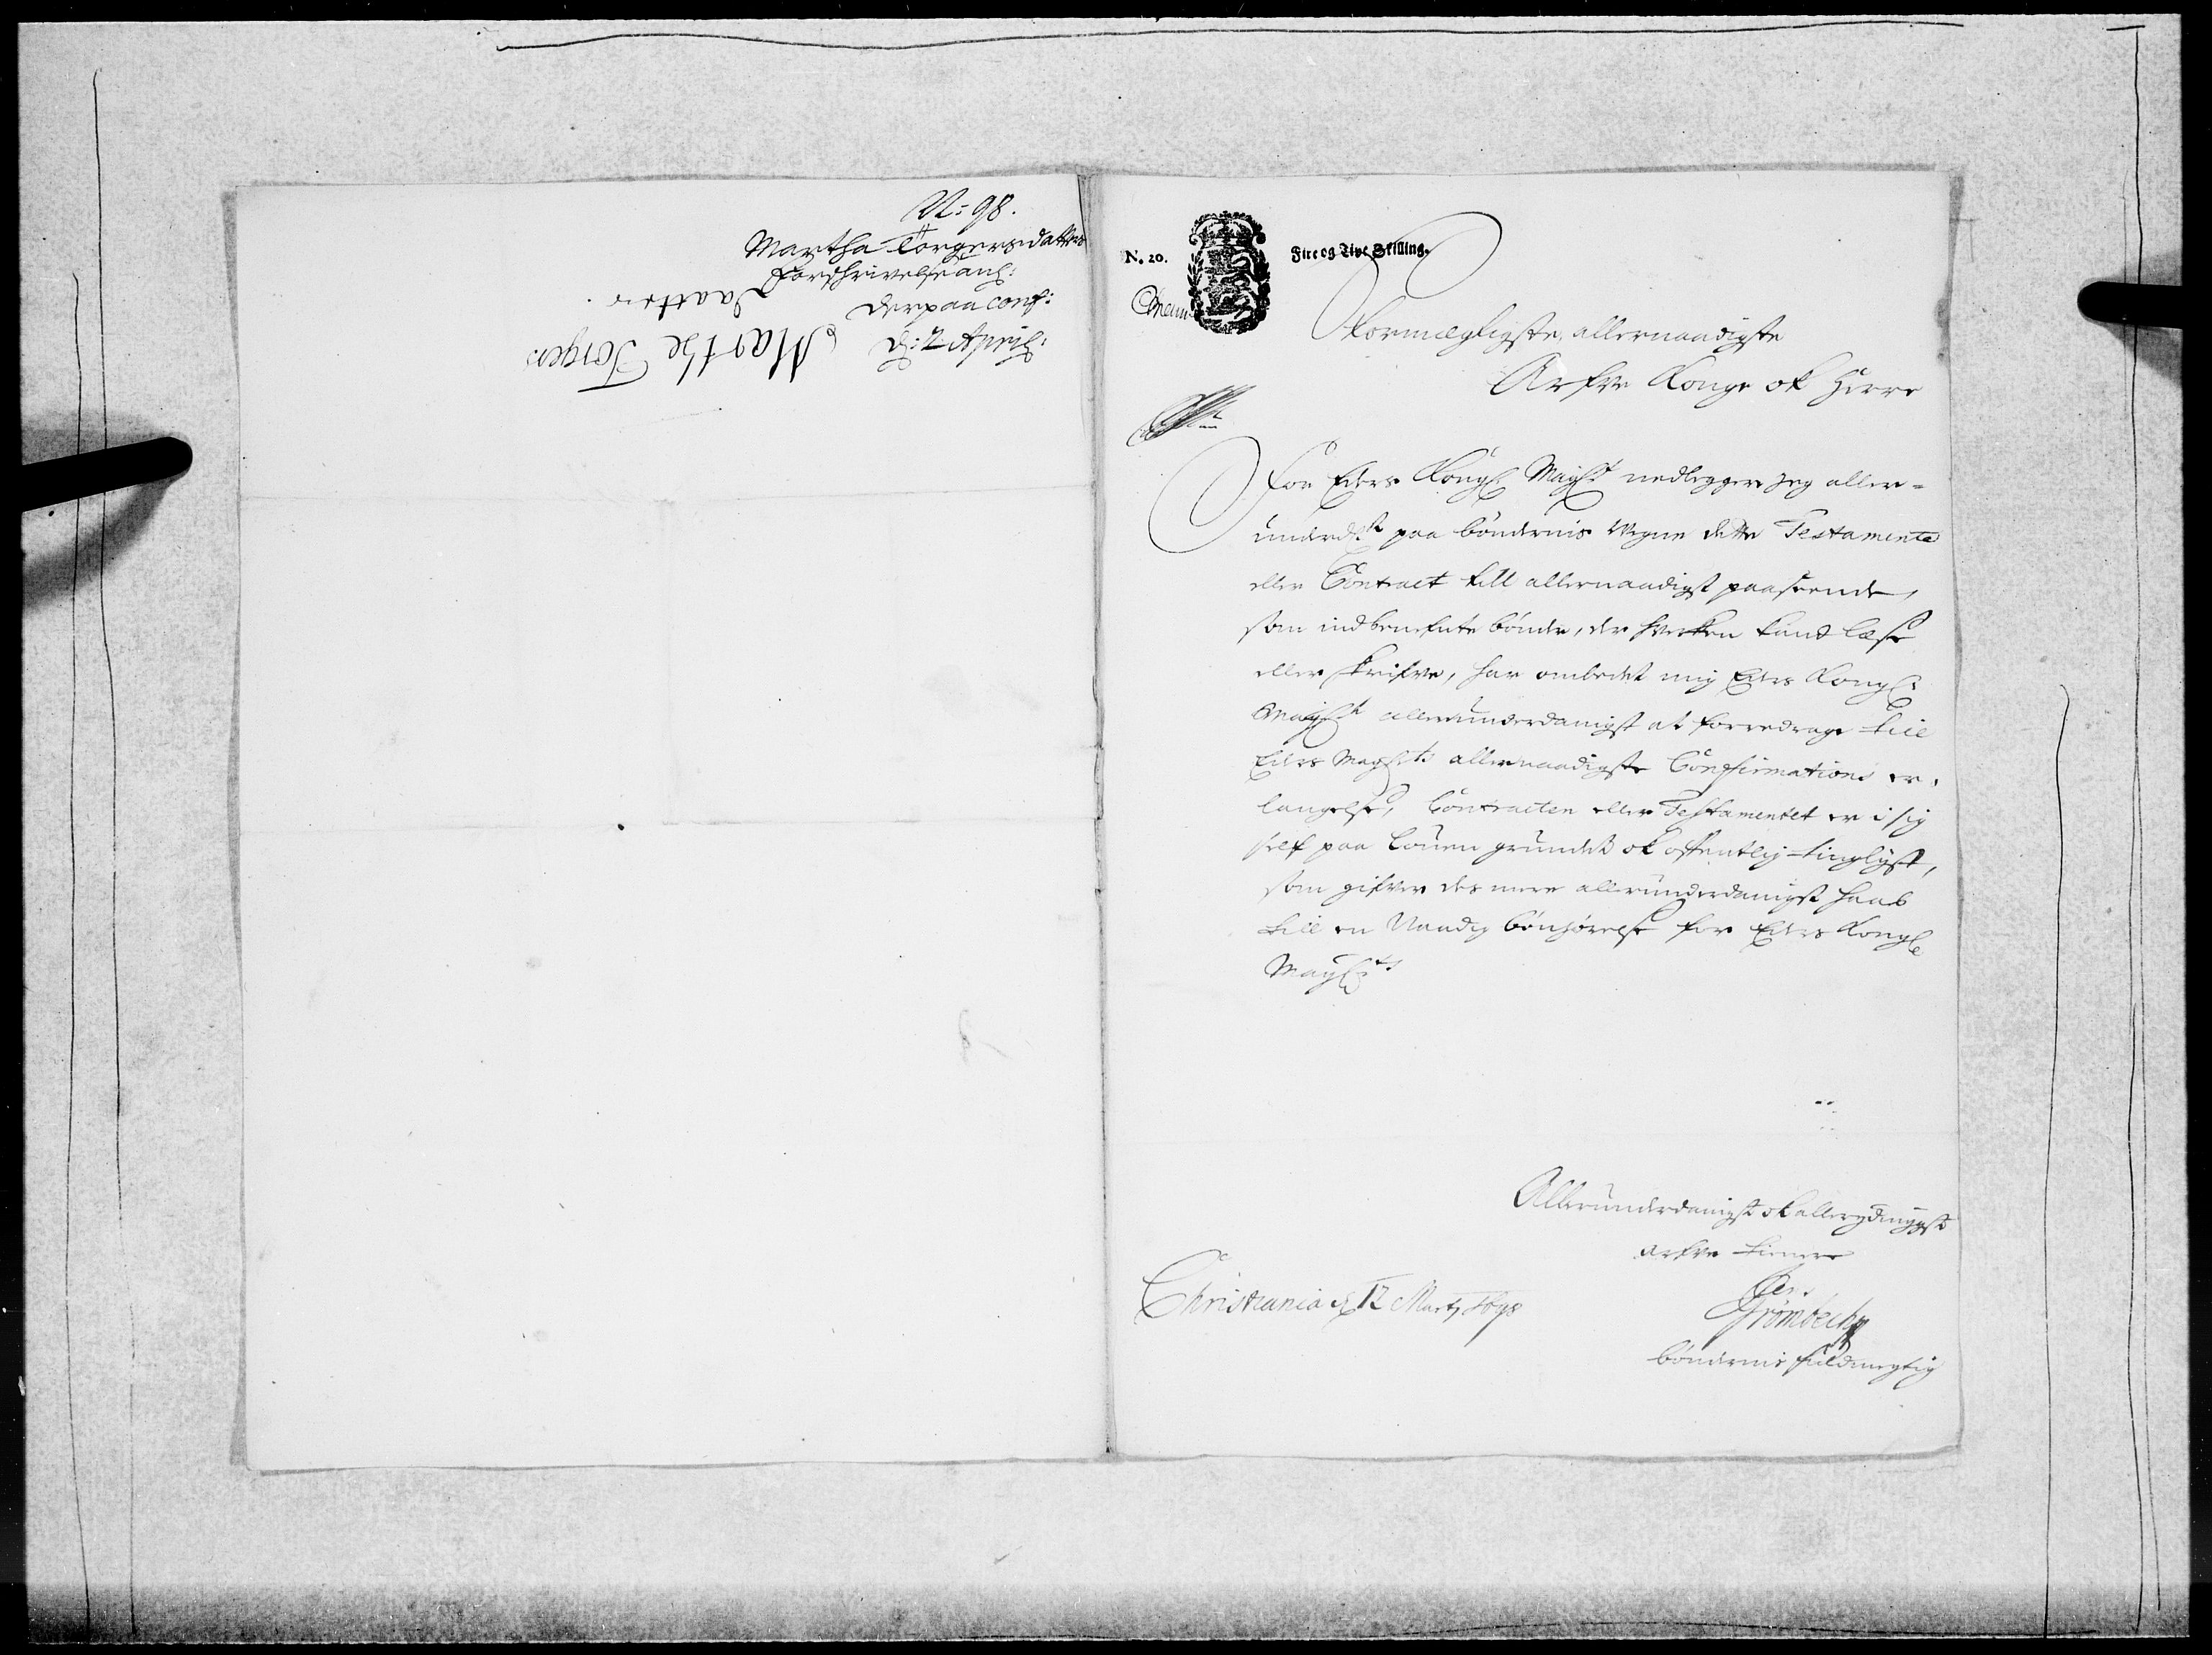 N: 98.
Martha Torgersdatters
Forschrivelse anl:
derpaa conf:
d: 2 April:
Marthe Torgers
Daatter
N. 20.
Fire og Tive Skilling.
Stormegtigste, allernaadigste
Arfve Konge ok Herre
For Eders Kongl Mayst nedlegger jeg aller-
underdst paa böndernis Vegne dette Testamente
eller Contract till allernaadigst paaseende,
som indbenefnte bönder, der hverken kand læse
eller skrifve, har ombedet mig Eders Kongl:
Mayst allerunderdanigst at forredrage till
Eders Maysts allernaadigste Confirmations er-
langelse, Contracten eller Testamentet er i sig
self paa Louen grundet ok offentlig tinglyst,
som gifver des mere allerunderdanigst haab
till en Naadig bönhörelse for Eders Kongl
Mayst:
Allerunderdanigst ok allerydmygst
arfve tienere
Grömbech
böndernis fuldmegtig
Christiania d 12 Marty 1698